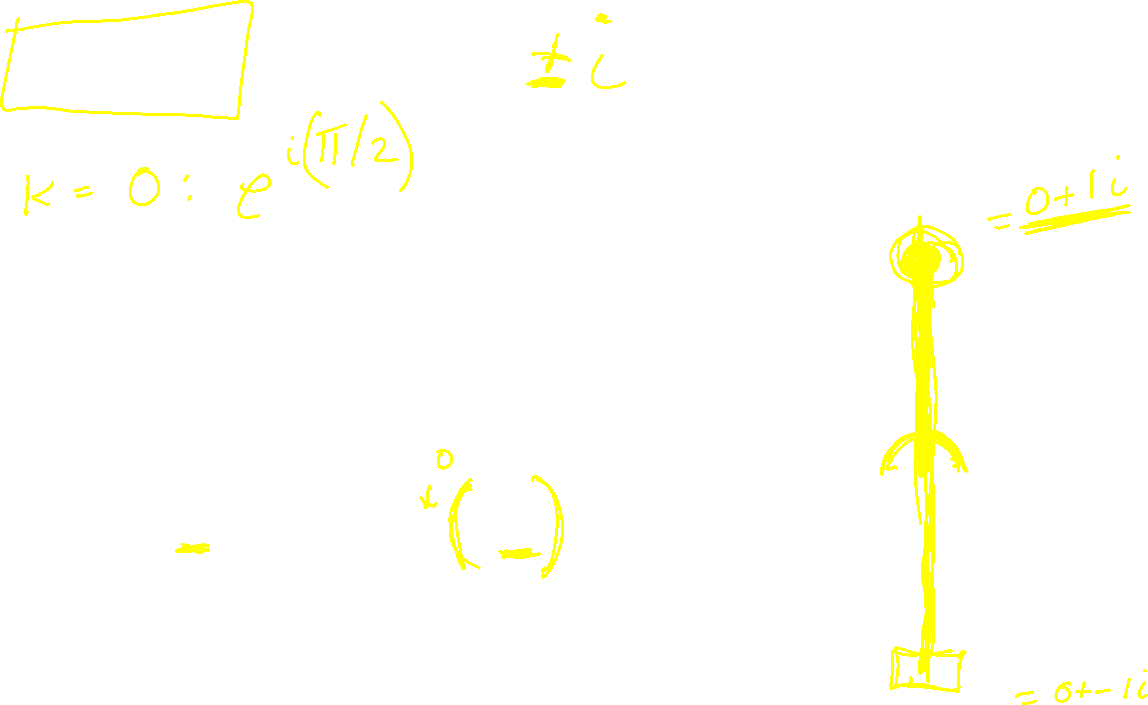 ± i
k = 0 : e^{i(π/2)}
= 0+1i
0
( _ )
_
= 0+-1i